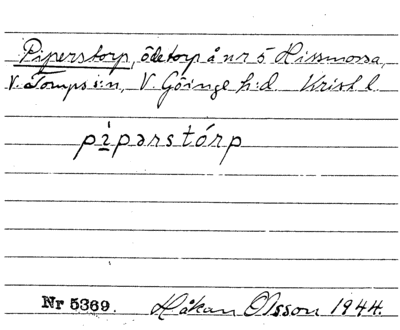 Piperstorp, ödetorp å nr 5 Hissmossa,
V. Torups s:n, V. Göinge h:d. Krist. l.
pìpərstórp
Nr 5369. Håkan Olsson 1944.